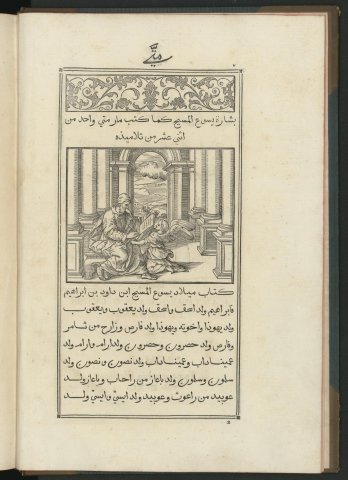 متّي
بشارة يسوع المسيح كما كتب مار متي واحد من
اثني عشر من تلاميذه
كتاب ميلاد يسوع المسيح ابن داود بن ابراهيم
فابراهيم ولد اسحق واسحق ولد يعقوب ويعقوب
ولد يهوذا واخوته ويهوذا ولد فارص وزارح من ثامر
وفارص ولد حصرون وحصرون ولد ارام وارام ولد
عميناداب وعميناداب ولد نصون ونصون ولد
سلون وسلون ولد باعاز من راحاب وباعاز ولد
عوبيد من راعوث وعوبيد ولد ايسي وايسي ولد